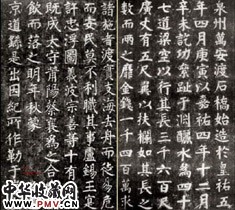 泉州萬安渡石橋始造於皇祐五
年四月庚寅以嘉祐四年十二月
辛未訖功絫趾于淵釃水為四十
七道梁空以行其長三千六百尺
廣丈有五尺翼以扶欄如其長之
數而兩之靡金錢一千四百萬求
諸施者渡實支海去舟而徒易危
而安民莫不利職其事盧錫王寔
許忠浮圖義波宗善等十有
既成太守莆陽蔡襄為之合樂
飲而落之明年秋蒙
京道繇是出因紀所作勒于
中华收藏网